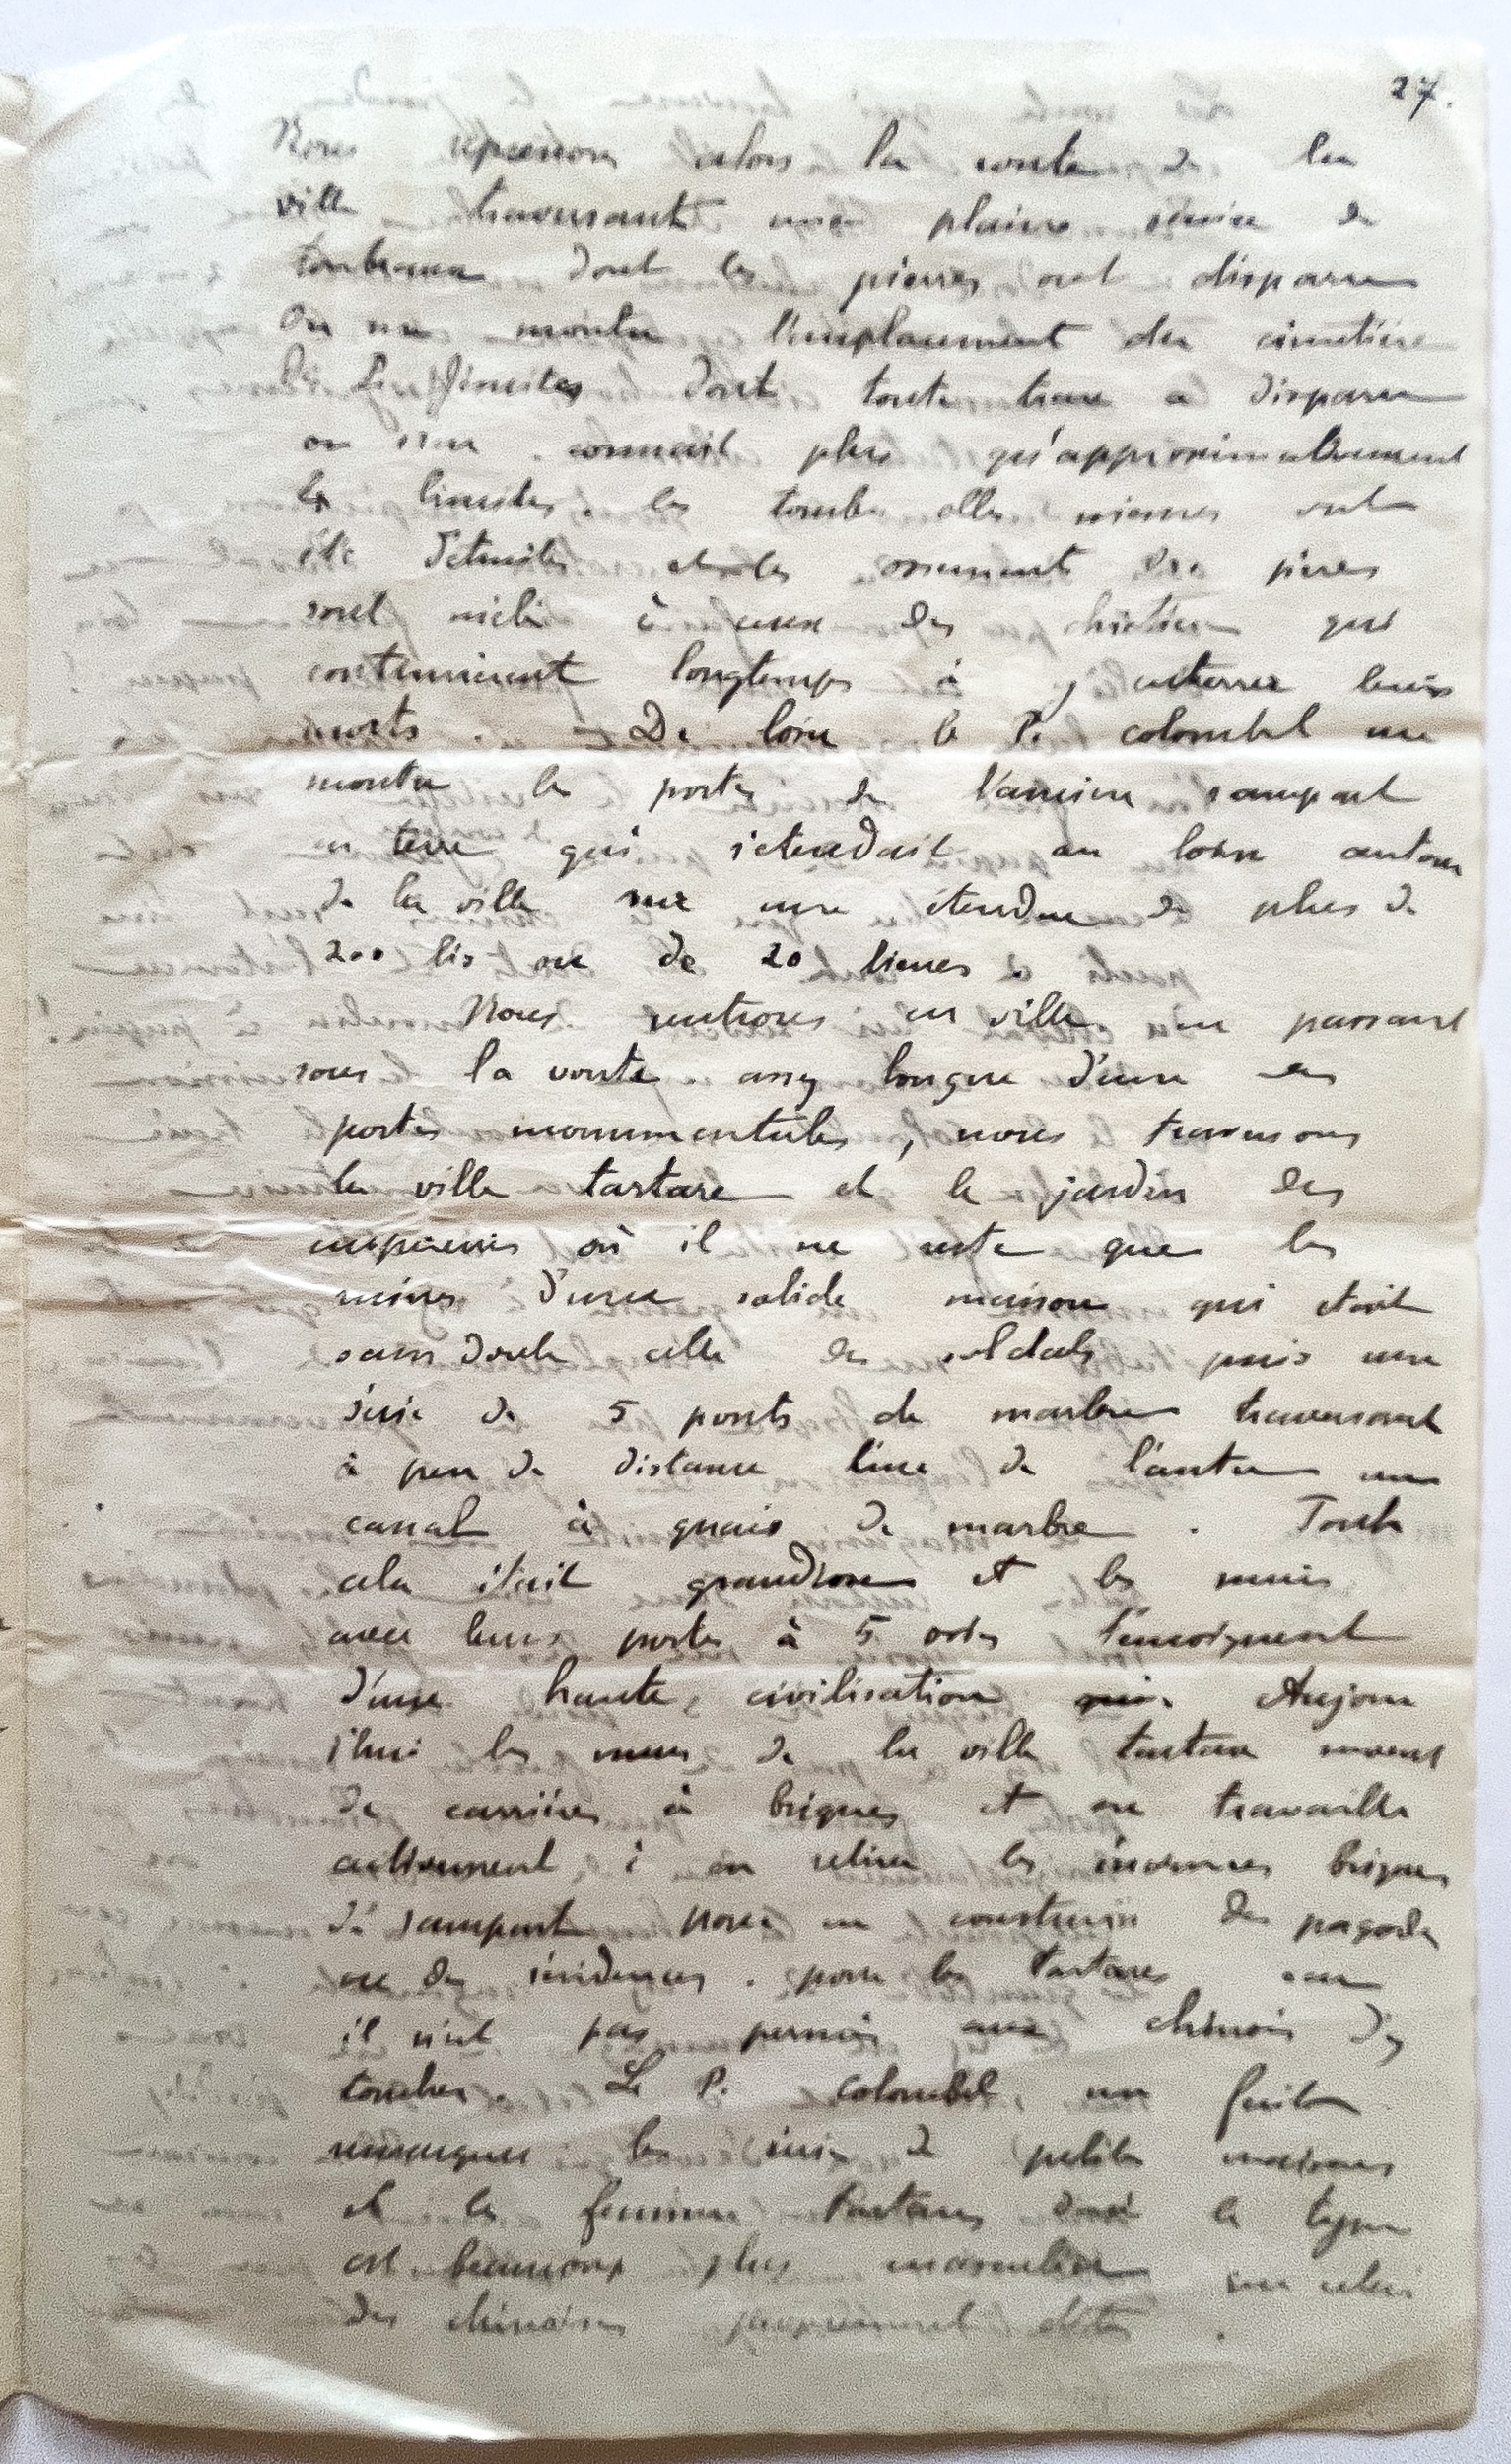 27.
Nous reprenons alors la route de la
ville traversant une plaine semée de
tombeaux dont les pierres ont disparu
On me montre l'emplacement du cimetière
des Jésuites dont toute trace a disparu
on n'en connait plus qu'approximativement
les limites. les tombes elles mêmes ont
été détruites et les ossements des pères
sont mêlés à ceux des chrétiens qui
continuèrent longtemps à y enterrer leurs
morts. - De loin le P. Colombel me
montre les portes de l'ancien rempart
en terre qui s'étendait au loin autour
de la ville sur une étendue de plus de
200 lis ou de 20 lieues.
Nous rentrons en ville en passant
sous la voute assez longue d'une des
portes monumentales, nous traversons
la ville tartare et le jardin des
empereurs où il ne reste que les
ruines d'une solide maison qui était
sans doute celle des soldats puis une
série de 5 ponts de marbre traversant
à peu de distance l'une de l'autre un
canal à quais de marbre. Tout
cela était grandiose et les murs
avec leurs portes à 5 témoignent
d'une haute civilisation qui. Aujour
d'hui les murs de la ville tartare servent
de carrières à briques et on travaille
activement à en retirer les énormes briques
du rempart pour en construire des pagodes
ou des résidences. pour les Tartares car
il n'est pas permis aux chinois d'y
toucher. Le P. Colombel me fait
remarquer les de petites maisons
et les femmes Tartares dont le type
est beaucoup plus masculin que celui
des chinoises proprement dites.